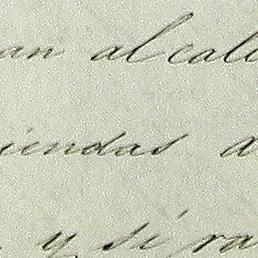 an alcal
iendas a
y si ra